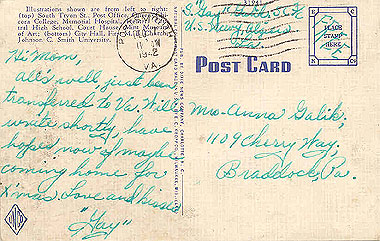 Illustrations shown are from left to right:
(top) South Tryon St. Post Office, Univer
cora College, Memorial Hospital,
tral High School, Court House, Mint Museum
of Art; (bottom) City Hall, First M.E. Church,
Johnson C. Smith University.
1942
VA.
U.S. Navy
Va.
PLACE
STAMP
HERE
POST CARD
Hi Mom,
All's well, just been
transferred to Va. Will
write shortly, have
hopes now of maybe
coming home for
X'mas. Love and kisses
"Gay"
Mrs. Anna Galik,
1109 Cherry Way,
Braddock, Pa.